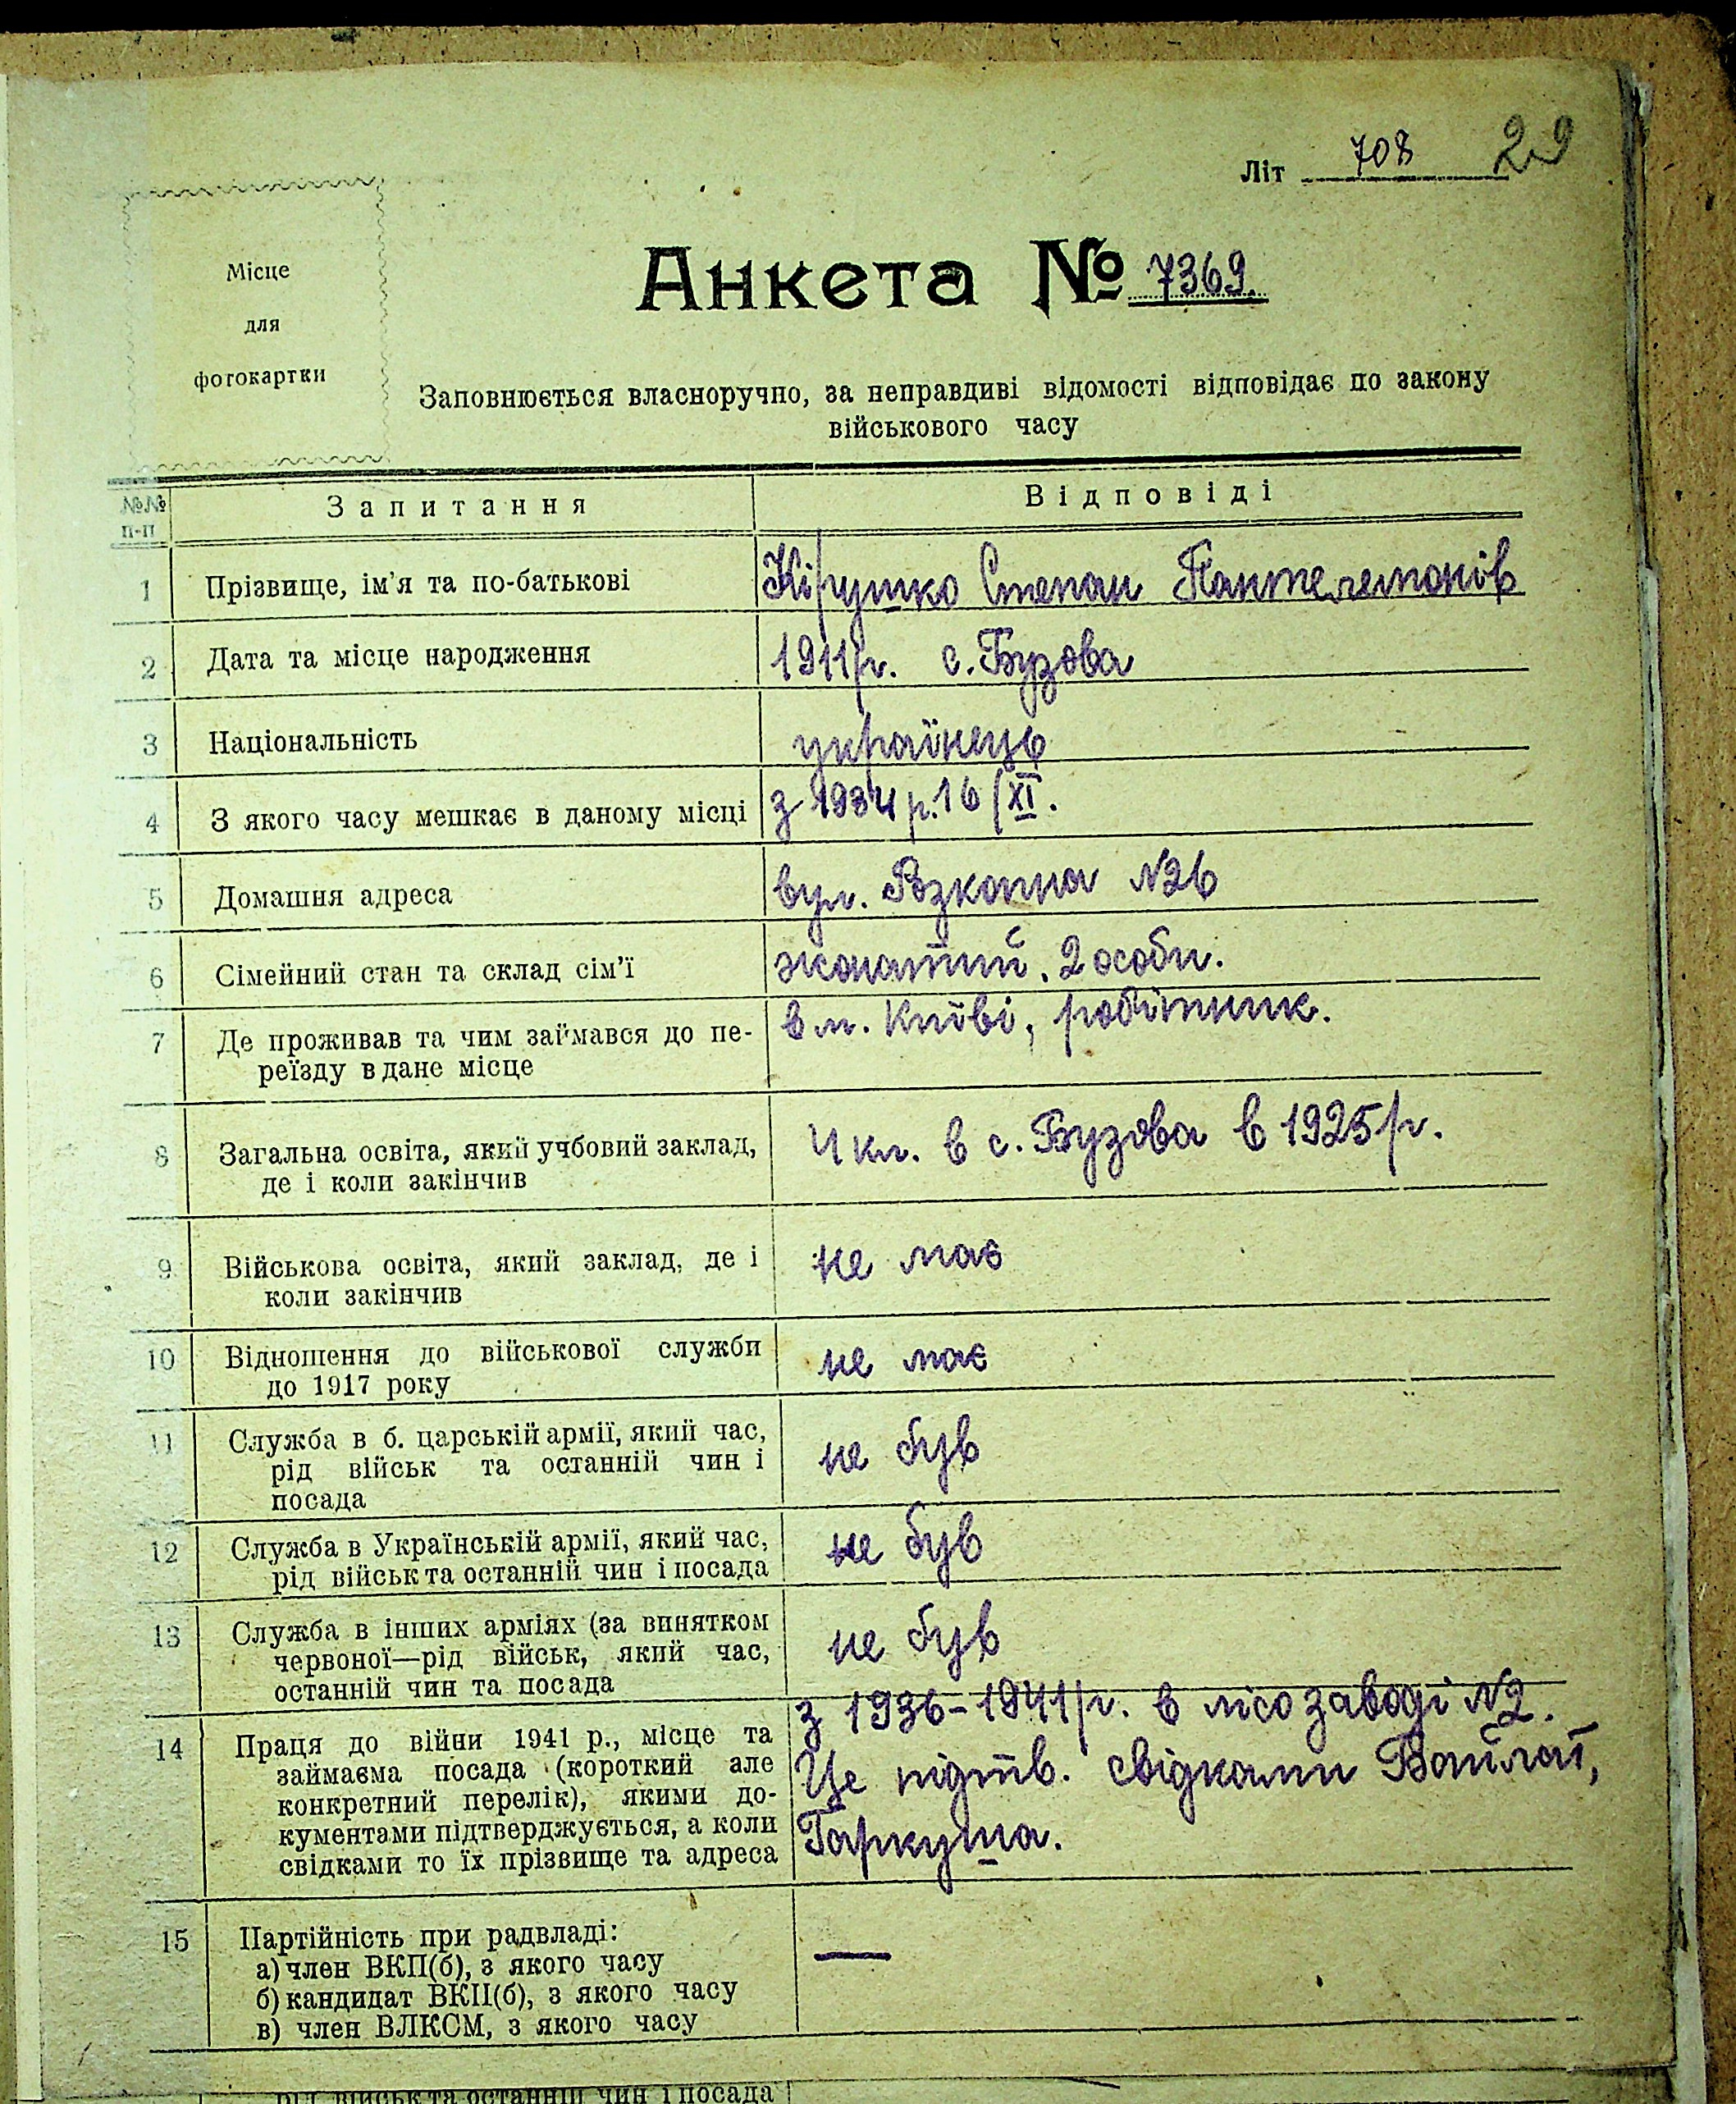 Літ 708 29
Місце
для
фотокартки
Анкета № 7369.
Заповнюється власноручно, за неправдиві відомості відповідає по закону
військового часу
№№
п-п
Запитання
Відповіді
1
Прізвище, ім'я та по-батькові
Кірушко Степан Пантелемонів
2
Дата та місце народження
1911 р. с. Бузова
3
Національність
українець
4
З якого часу мешкає в даному місці
з 1934 р. 16/XI.
5
Домашня адреса
вул. №26
6
Сімейний стан та склад сім'ї
жонатий. 2 особи.
7
Де проживав та чим займався до пе-
реїзду в дане місце
в м. Київі, робітник.
8
Загальна освіта, який учбовий заклад,
де і коли закінчив
4 кл. в с. Бузова в 1925 р.
9
Військова освіта, який заклад, де і
коли закінчив
не має
10
Відношення до військової служби
до 1917 року
не має
11
Служба в б. царській армії, який час,
рід військ та останній чин і
посада
не був
12
Служба в Українській армії, який час,
рід військ та останній чин і посада
не був
13
Служба в інших арміях (за винятком
червоної—рід військ, який час,
останній чин та посада
не був
14
Праця до війни 1941 р., місце та
займаєма посада (короткий але
конкретний перелік), якими до-
кументами підтверджується, а коли
свідками то їх прізвище та адреса
з 1936-1941 р. в лісозаводі №2.
Це підтв. свідками
Гаркуша.
15
Партійність при радвладі:
а) член ВКП(б), з якого часу
б) кандидат ВКП(б), з якого часу
в) член ВЛКСМ, з якого часу
—
рід військ та останній чин і посада